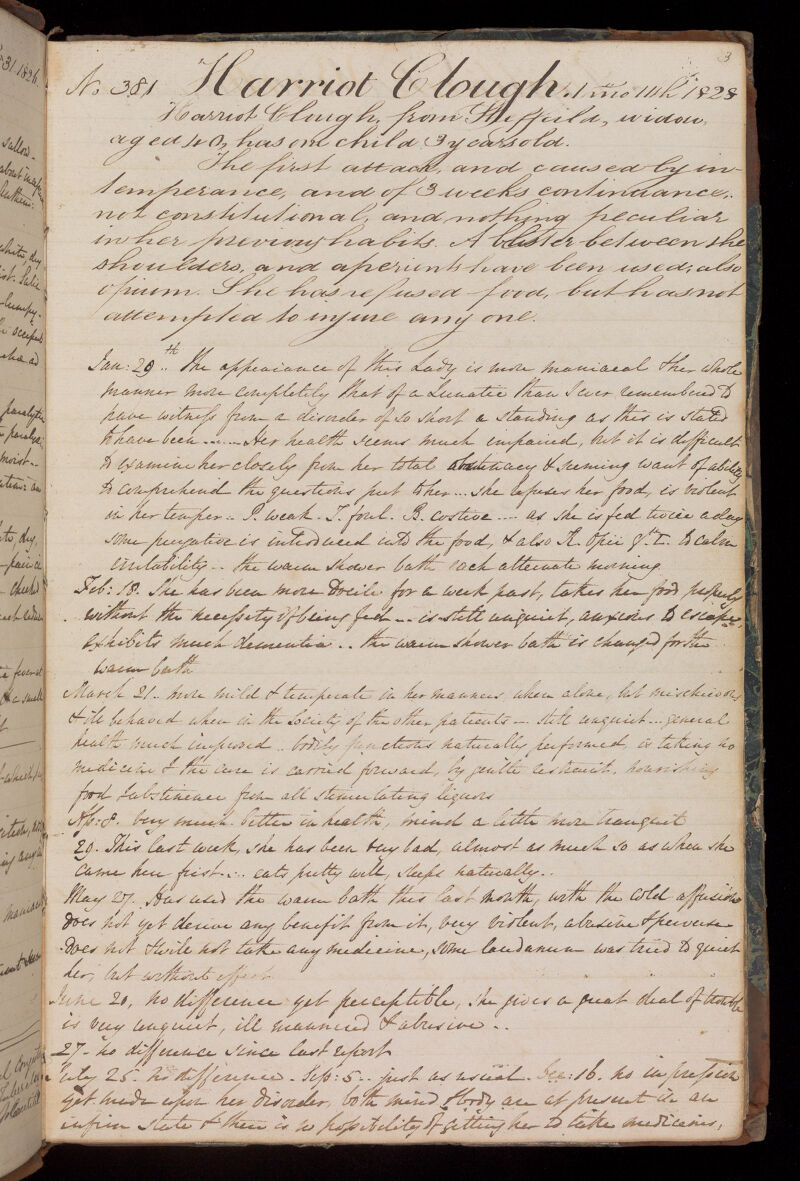 3
No 381 Harriot Clough. 1 mo 11th 1828
Harriot Clough, from Sheffield, widow,
aged 40, has one child 3 years old.
The first attack, and caused by in-
temperance, and of 3 weeks continuance;
not constitutional, and nothing peculiar
in her previous habits. A blister between the
shoulders, and aperients have been used; also
opium. She has refused food, but has not
attempted to injure any one.
Jan: 20th .. The appearance of this Lady is more maniacal & her whole
manner more completely that of a Lunatic than I ever remembered to
have witness from a disorder of so short a standing as this is stated
to have been ...... Her health seems much impaired, but it is difficult
to examine her closely from her total obstinacy & seeming want of ability
to comprehend the questions put to her ... she refuses her food, is violent
in her temper .. P. weak. T. foul. B. costive .... as she is fed twice a day
some purgative is introduced into the food, & also to calm
irritability .. the warm shower bath each alternate morning
Feb: 18. She has been more docile for a week past, takes her food properly
without the necessity of being fed ... is still unquiet, anxious to escape,
exhibits much dementia .. the warm shower bath is changed for the
warm bath
March 21. more mild & temperate in her manners, when alone, but mischievous
& ill behaved when in the Society of the other patients ... still unquiet ... general
health much improved .. bodily functions naturally performed, is taking no
medicine & the cure is carried forward, by gentle restraint, nourishing
food & abstinence from all stimulating liquors
Ap: 8. very much better in health, mind a little more tranquil
29. This last week, she has been very bad, almost as much so as when she
came here first ... eats pretty well, sleeps naturally ..
May 27. Has used the warm bath this last month, with the cold affusion
does not yet derive any benefit from it, very violent, abusive & perverse
does not & will not take any medicine, some laudanum was tried to quiet
her, but without effect
June 20, no difference yet perceptible, she gives a great deal of trouble
is very unquiet, ill mannered & abusive ..
27 - no difference since last report
July 25. no difference. Sep: 5 .. just as usual. Dec: 16. no impression
yet made upon her disorder, both mind & body are at present in an
infirm state & there is no possibility of getting her to take medicines,